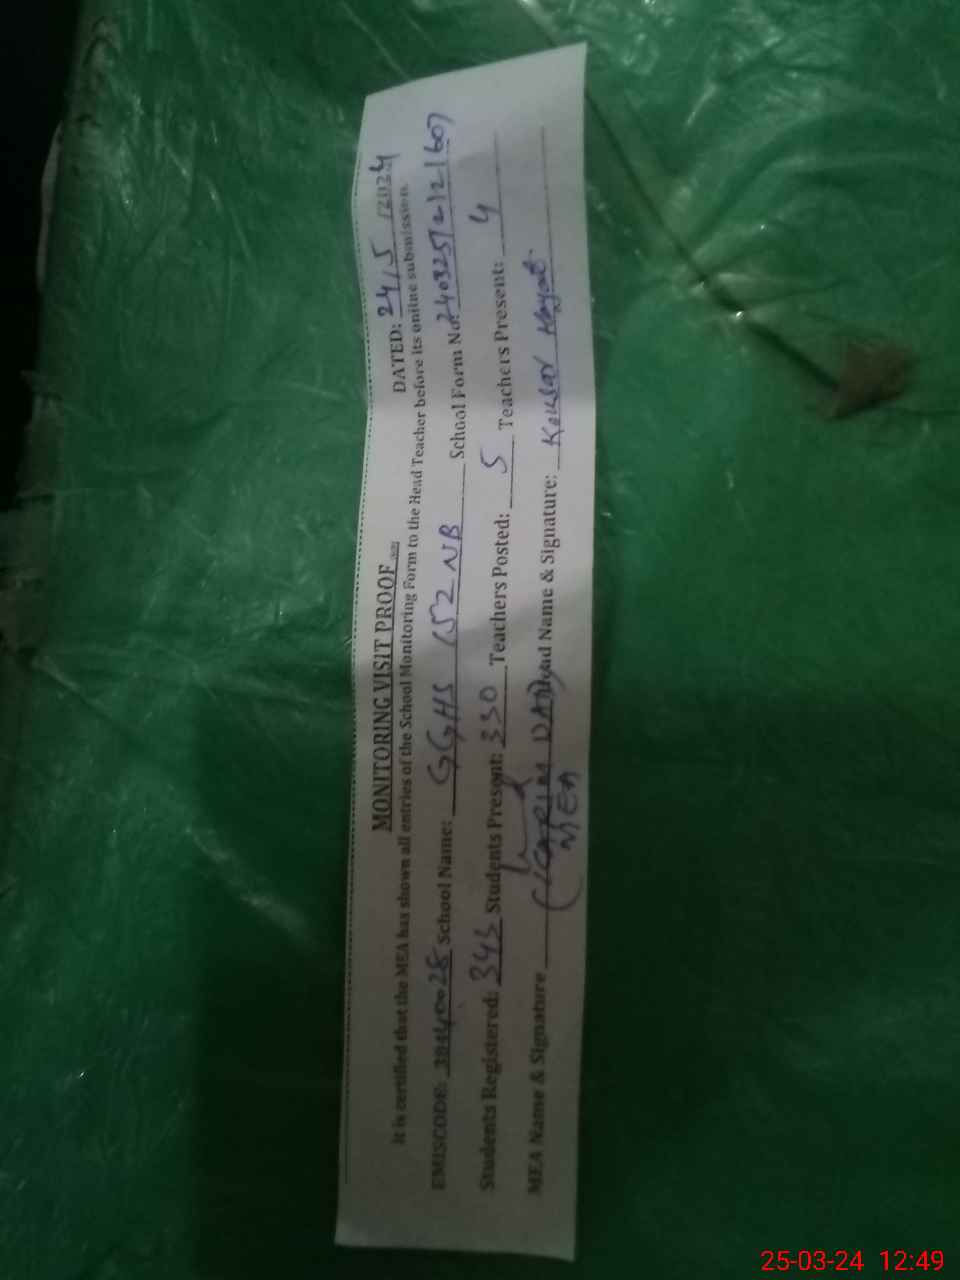 MONITORING VISIT PROOF
DATED: 24/5/2024
It is certified that the MEA has shown all entries of the School Monitoring Form to the Head Teacher before its online submission.
EMISCODE: 38440028 School Name: GGHS 152 NB School Form No. 240325/2/2/607
Students Registered: 343 Students Present: 330 Teachers Posted: 5 Teachers Present: 4
MEA Name & Signature (KARIM DAD) Head Name & Signature: Kousar Hayat
MEA
25-03-24 12:49